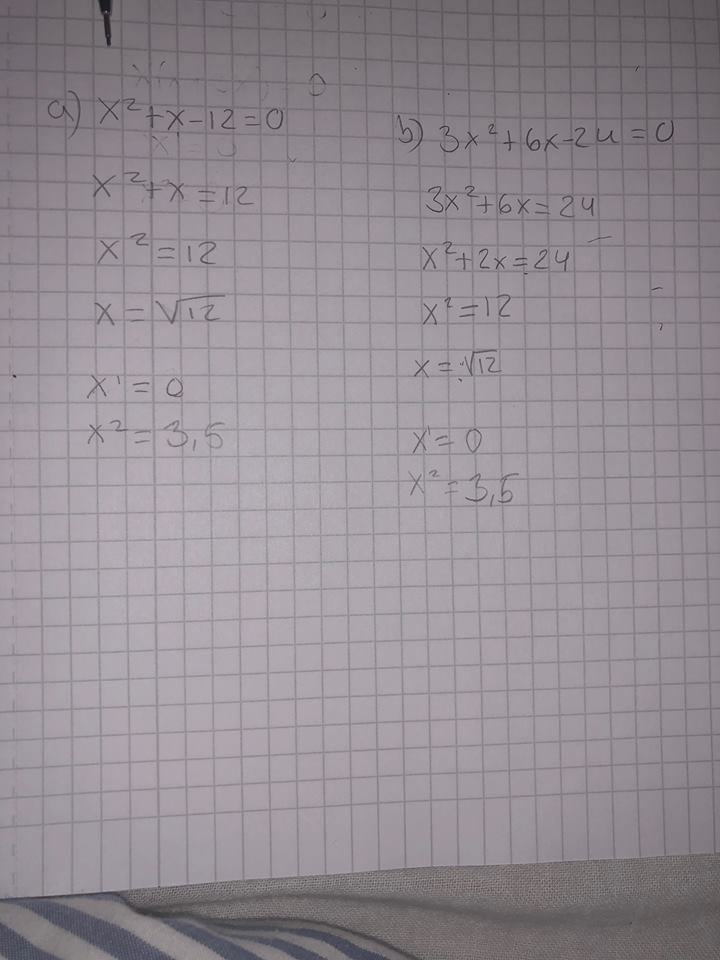 a) x²+x-12=0
x²+x=12
x²=12
x=√12
x'=0
x²=3,5
b) 3x²+6x-24=0
3x²+6x=24
x²+2x=24
x²=12
x=√12
x'=0
x²=3,5